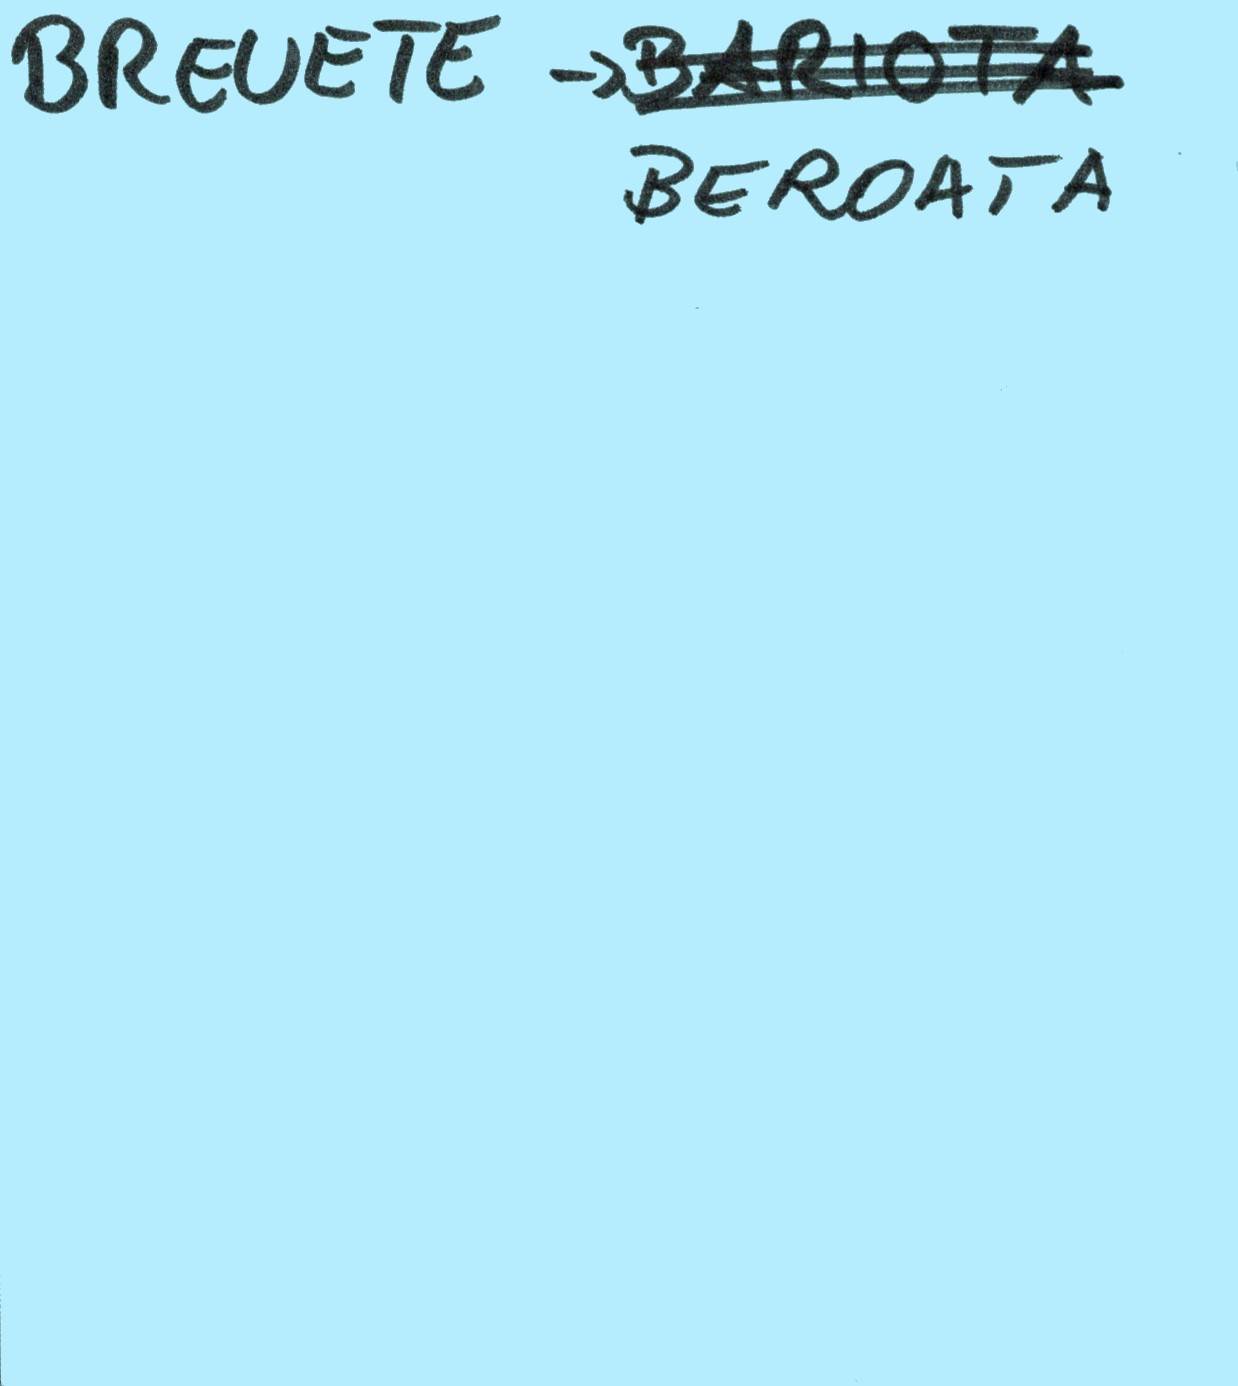 BREUETE → BARIOTA
BEROATA